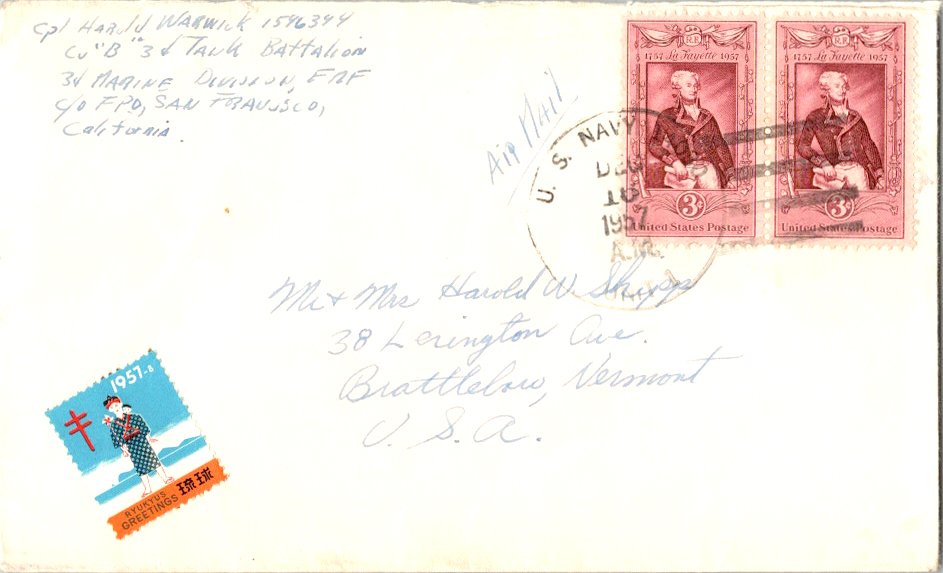 Cpl Harold Warwick 1596394
Co "B" 3d Tank Battalion
3d Marine Division, FMF
c/o FPO, San Francisco,
California.
Air Mail
U. S. NAVY
DEC
16
1957
A.M.
R F
1757 La Fayette 1957
3¢
United States Postage
R F
1757 La Fayette 1957
3¢
United States Postage
Mr & Mrs Harold W. Shipp
38 Lexington Ave.
Brattleboro, Vermont
U. S. A.
1957-8
RYUKYUS
GREETINGS
琉球